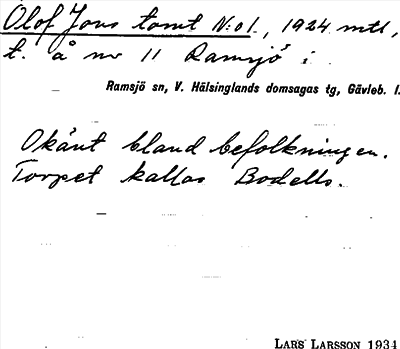 Olof Jons tomt N:o 1., 1924 mtl,
t. å nr 11 Ramsjö i
Ramsjö sn, V. Hälsinglands domsagas tg, Gävleb. l.
Okänt bland befolkningen.
Torpet kallas Bodells.
LARS LARSSON 1934